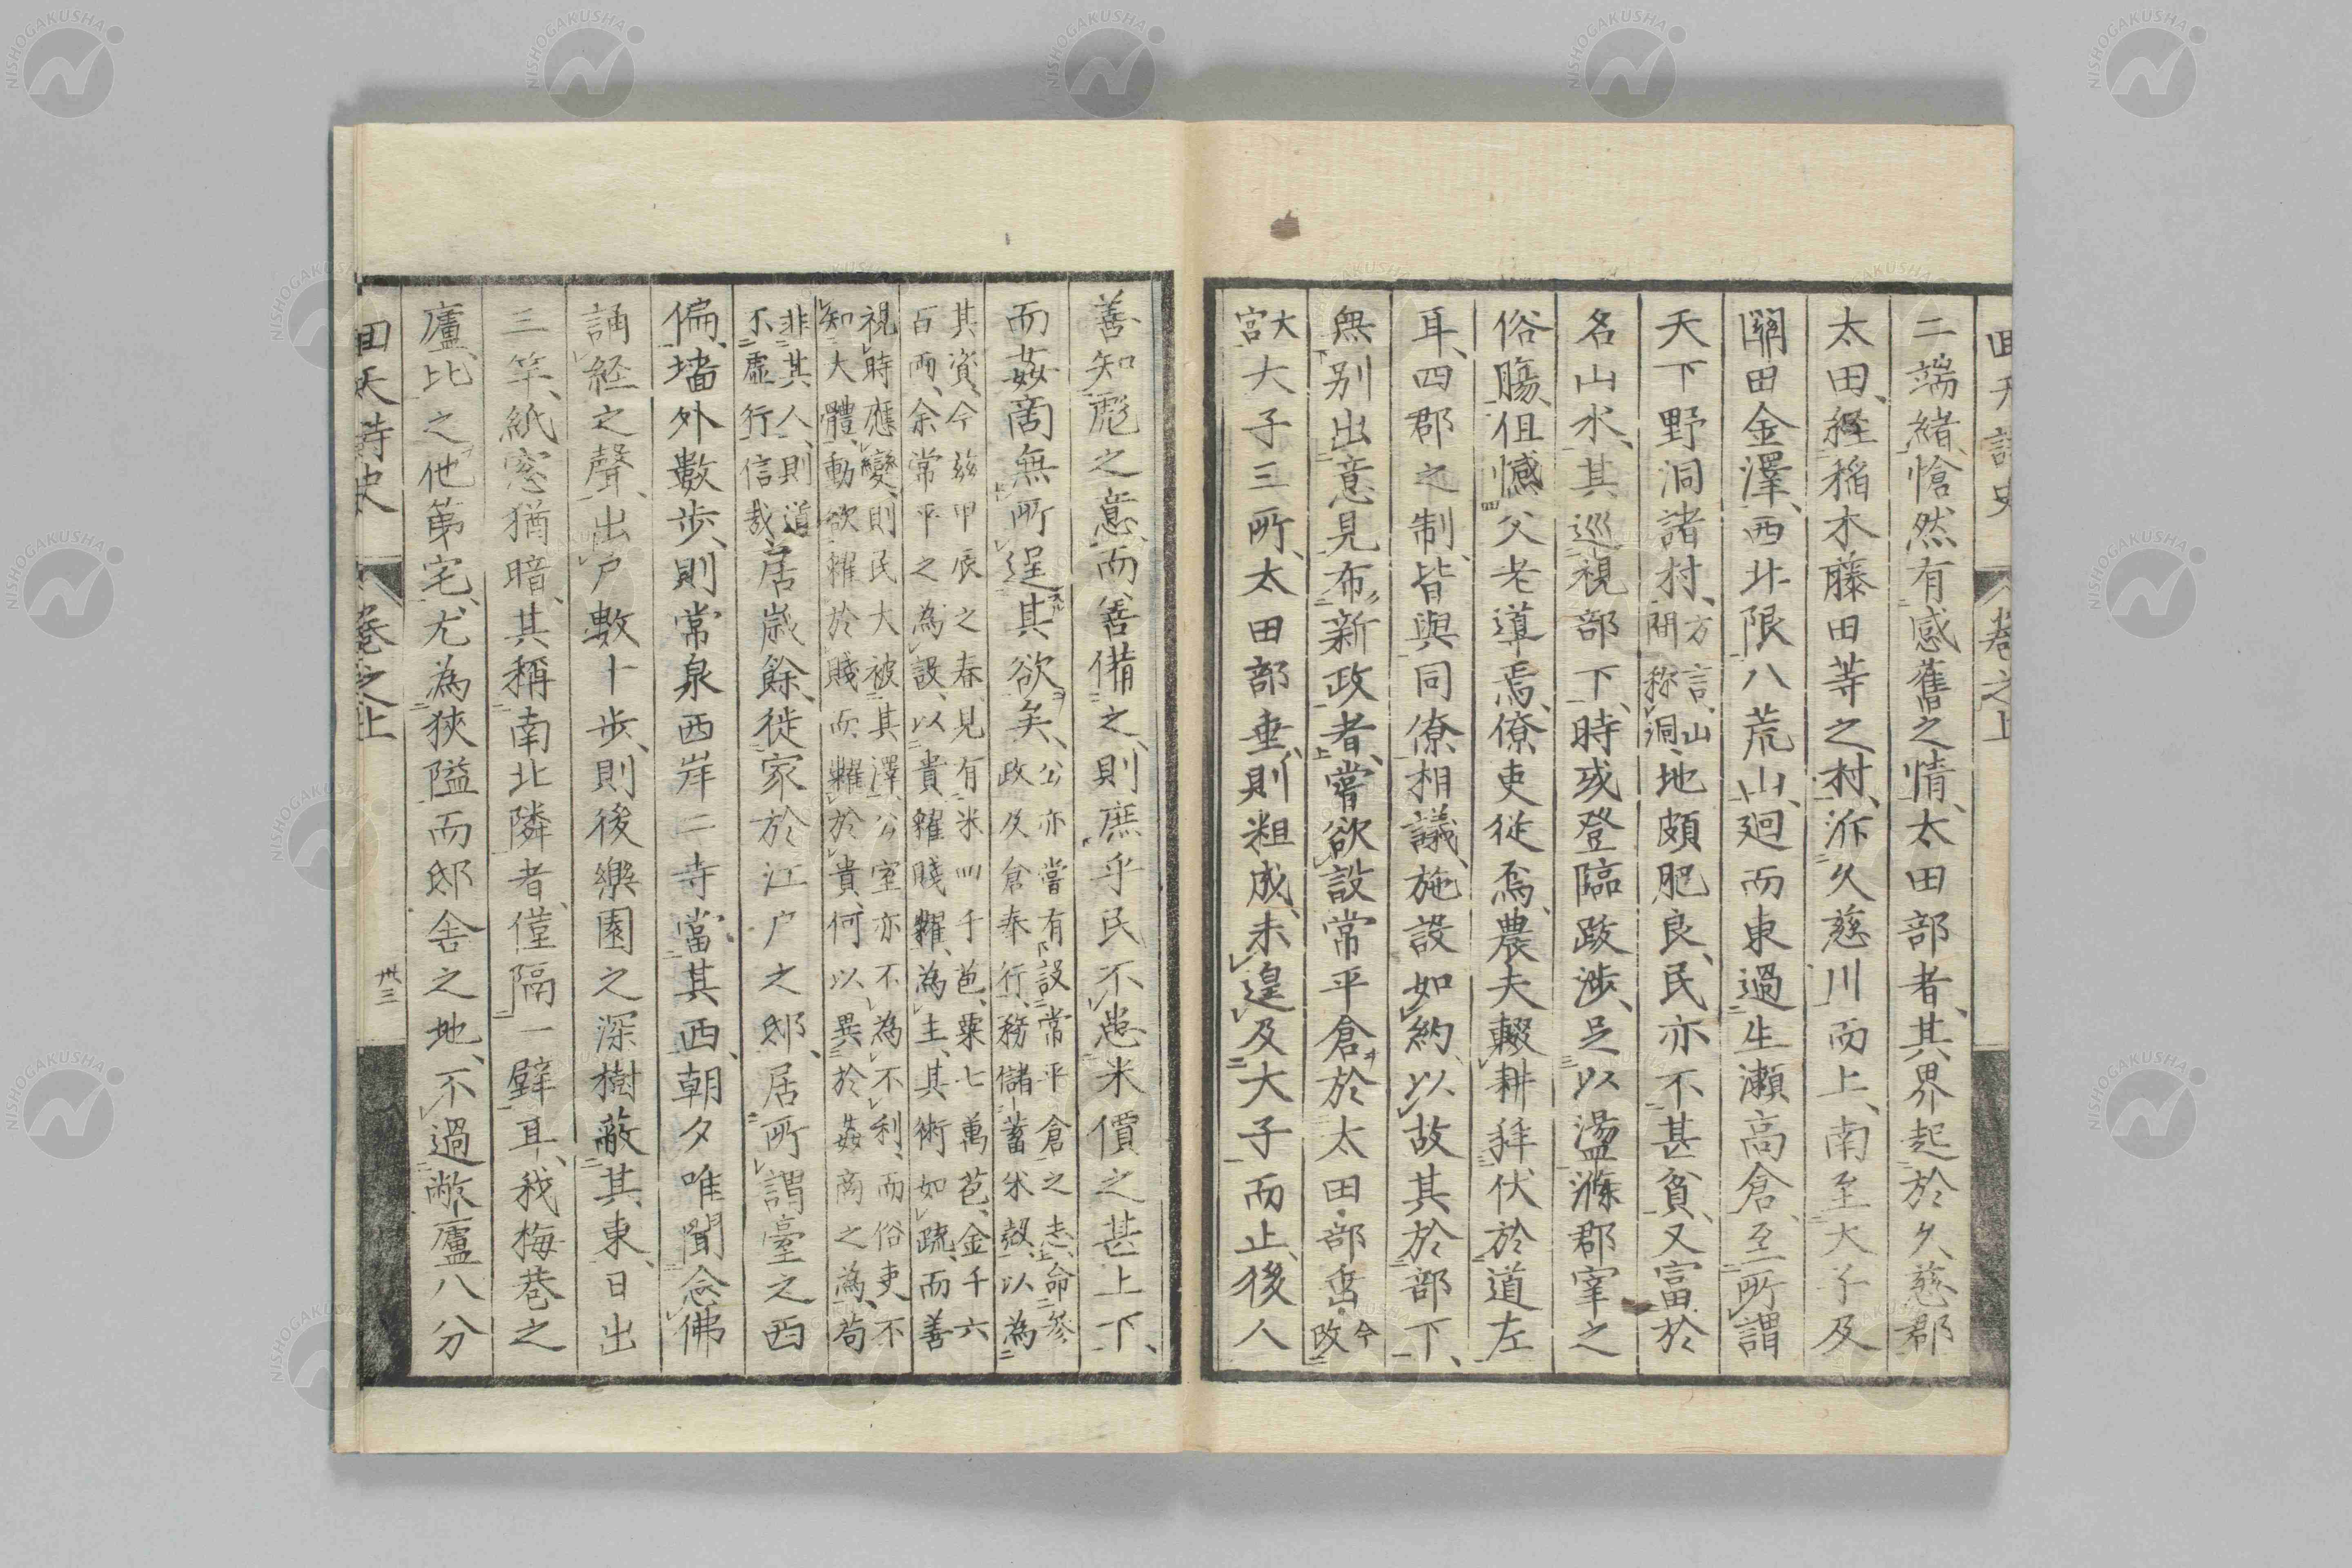 回天詩史 卷之上
二端緒、愴然有感舊之情、太田部者、其界起於久慈郡
太田、經稲木藤田等之村、泝久慈川而上、南至大子及
關田金澤、西北限八荒山、廻而東過生瀬高倉、至所謂
天下野洞諸村、方言、山間称洞、地頗肥良、民亦不甚貧、又富於
名山水、其巡視部下、時或登臨跋渉、足以盪滌郡宰之
俗腸、但憾父老導焉、僚吏從焉、農夫輟耕拜伏於道左
耳、四郡之制、皆與同僚相議、施設如約、以故其於部下、
無別出意見布新政者、嘗欲設常平倉於太田部、今改
大宮大子三所、太田部垂、則粗成、未遑及大子而止、後人
善知彪之意、而善備之、則庶乎民不患米價之甚上下、
而姦商無所逞其欲矣、公亦嘗有設常平倉之志、命參政及倉奉行、務儲蓄米穀、以為
其資、今茲甲辰之春、見有米四千苞、粟七萬苞、金千六百両、余常平之為設、以貴糴賤糶、為主、其術如疏、而善
視時應變、則民大被其澤、公室亦不為不利、而俗吏不知大體、動欲糶於賤而糴於貴、何以異於姦商之為、苟
非其人、則道不虚行、信哉、居歳餘、徙家於江戸之邸、居所謂臺之西
偏、墻外數歩、則常泉西岸二寺當其西、朝夕唯聞念佛
誦経之聲、出戸數十歩、則後樂園之深樹蔽其東、日出
三竿、紙窓猶暗、其稱南北隣者、僅隔一壁耳、我梅巷之
廬、比之他第宅、尤為狹隘而邸舎之地、不過敝廬八分
回天詩史 卷之上 卅三